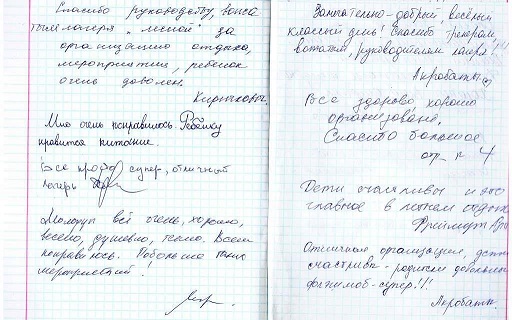 Спасибо руководству, вожа
тым лагеря за
организацию отдыха,
мероприятия, ребенок
очень доволен.
Мне очень понравилось. Ребёнку
нравится питание.
Все просто супер, отличный
лагерь
Молодцы всё очень, хорошо,
весело, душевно, тепло. Всем
понравилось. Побольше таких
мероприятий!
Замечательно-добрый, весёлый
классный день! Спасибо тренерам,
вожатым, руководителям лагеря!!!
Акробаты
Все здорово, хорошо
организовано.
Спасибо большое
Дети счастливы и это
главное в летнем отдыхе
Отличная организация, дети
счастливы - родители довольны
флешмоб-супер!!!
Акробаты.